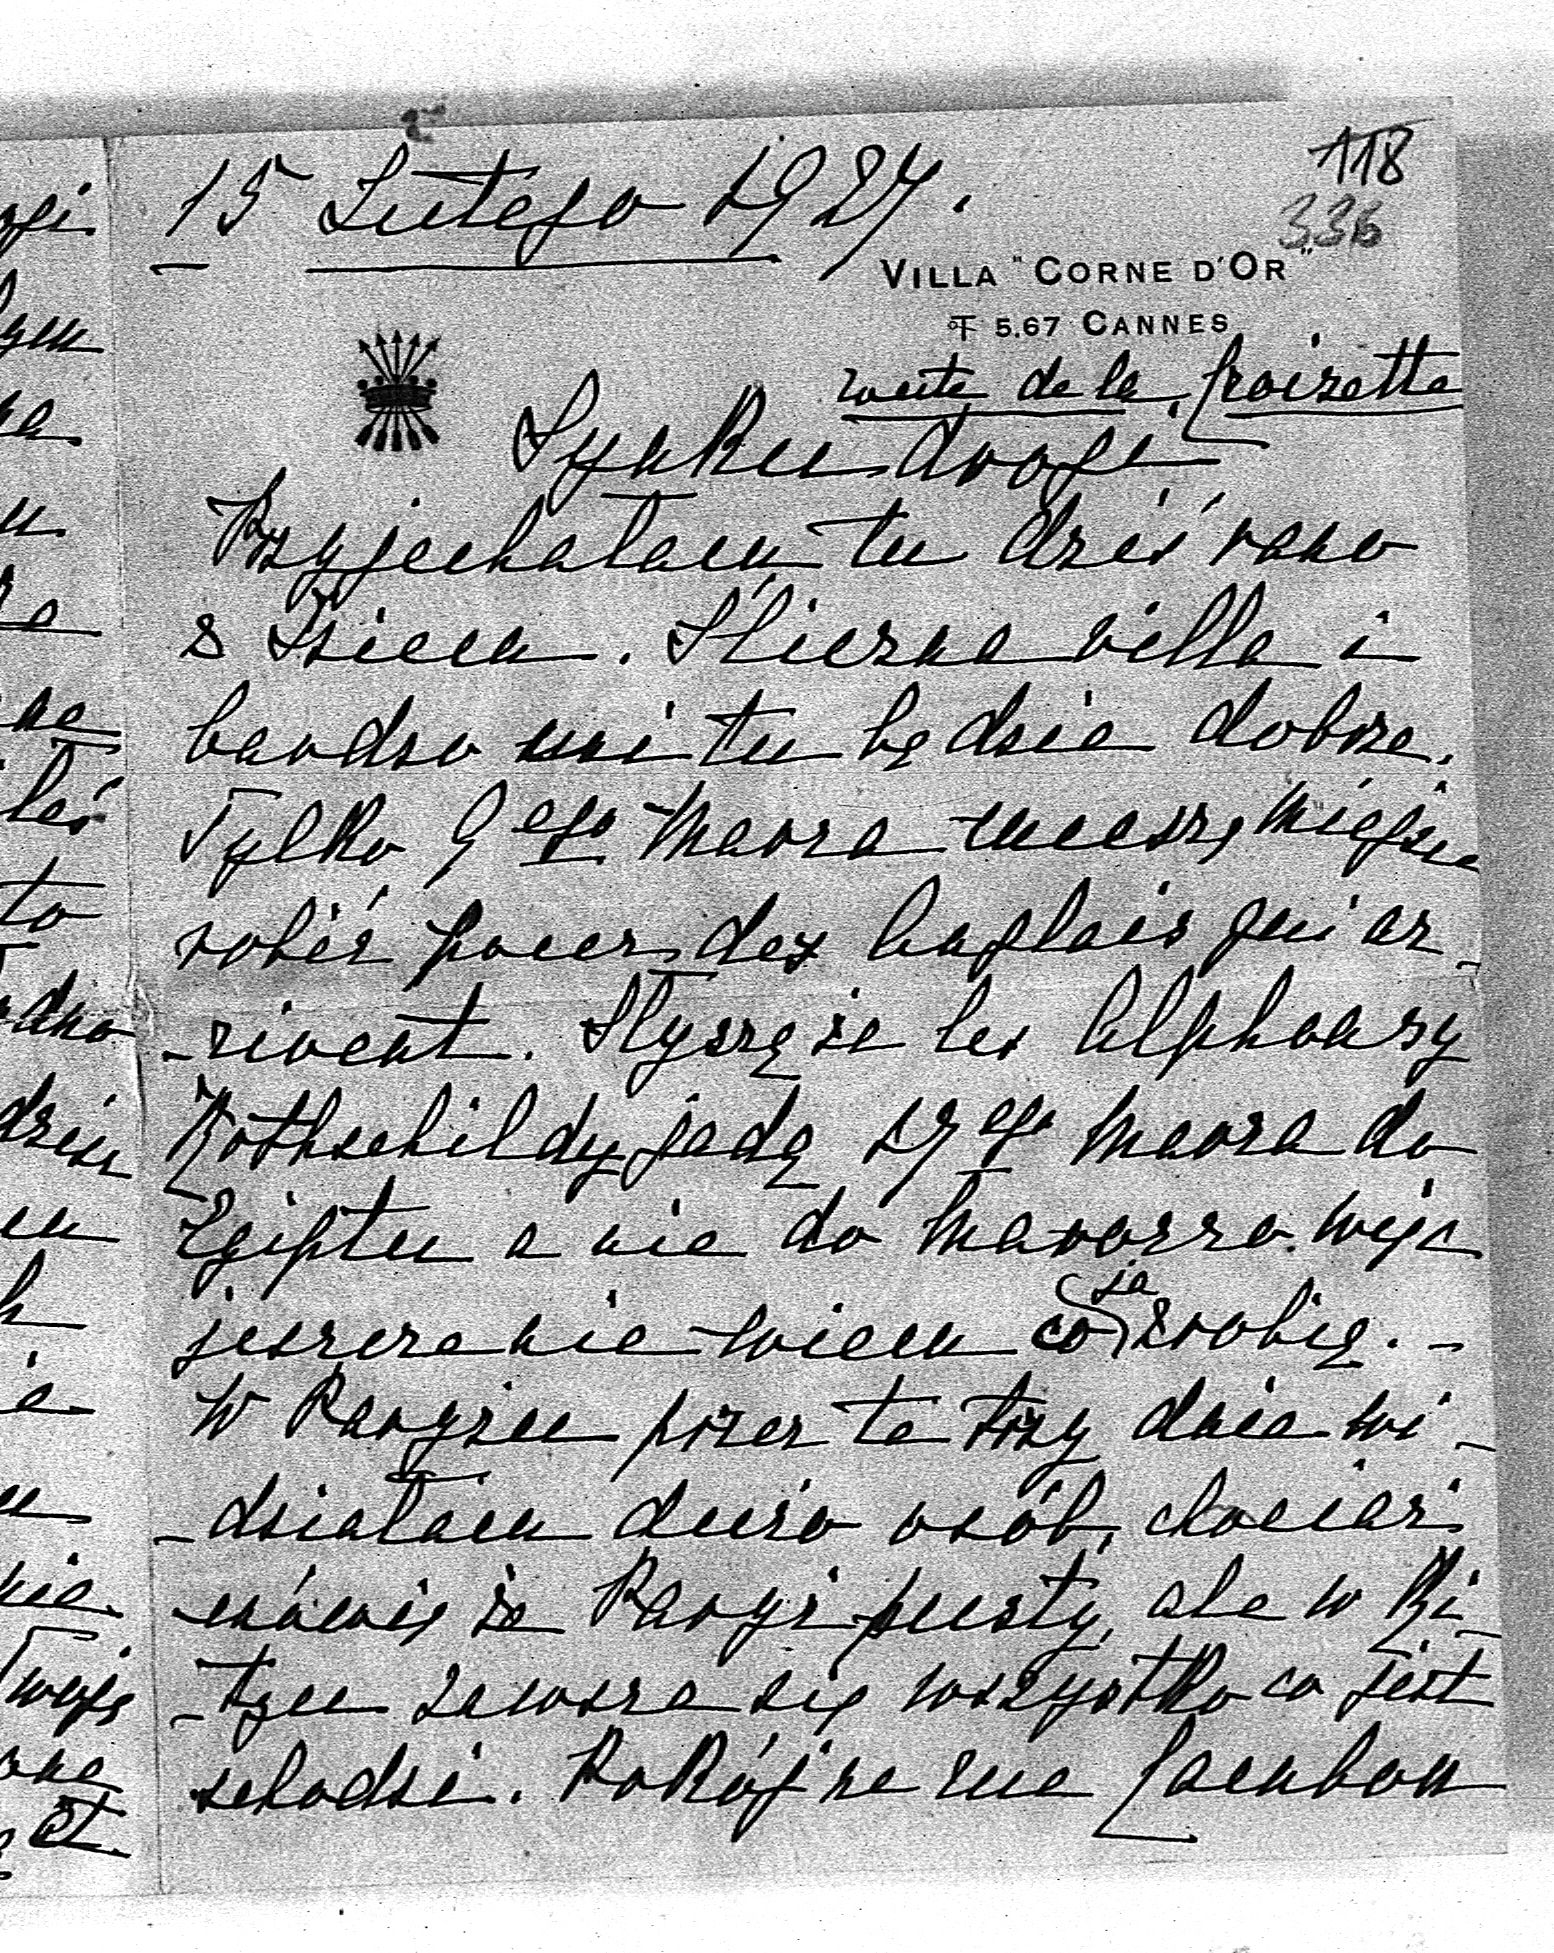 118
15 Lutego 1927.
336
VILLA "CORNE D'OR"
T 5.67 CANNES
route de la Croizette
Synku drogi
Przyjechałam tu dziś rano
z Ysieem. Śliczna villa i
bardzo mi tu będzie dobrze.
Tylko 9ego Marca muszę miejsce
robić pour des Anglais qui ar_
_rivent. Słyszę że les Alphonsy
Rothschildy jadą 17ego Marca do
Egiptu a nie do Marocco. więc
jeszcze nie wiem co ja zrobię. _
W Paryżu przez te trzy dnie wi_
_działam dużo osób, chociaż
mówią że Paryż pusty, ale w Ri_
_tzu zawsze się wszystko co jest
schodzi. Pokój na rue Cambon